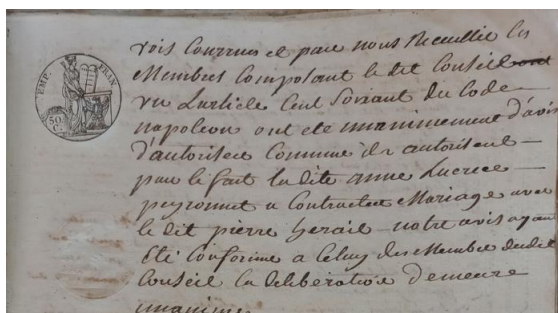 EMP. FRAN
50
C.
vois Connues et par nous Recueillie les
Membres Composant le dit Conseil
vu Larticle Cent Soixant du Code
napoleon ont eté unanimement d'avis
d'autoriser Comme ils autorisent
par le fait la dite anne Lucrece
peyronnet a Contracter Mariage avec
le dit pierre Gerail notre avis ayant
Eté Conforme a Celuy des Membre dudit
Conseil la deliberation Demeure
unanime